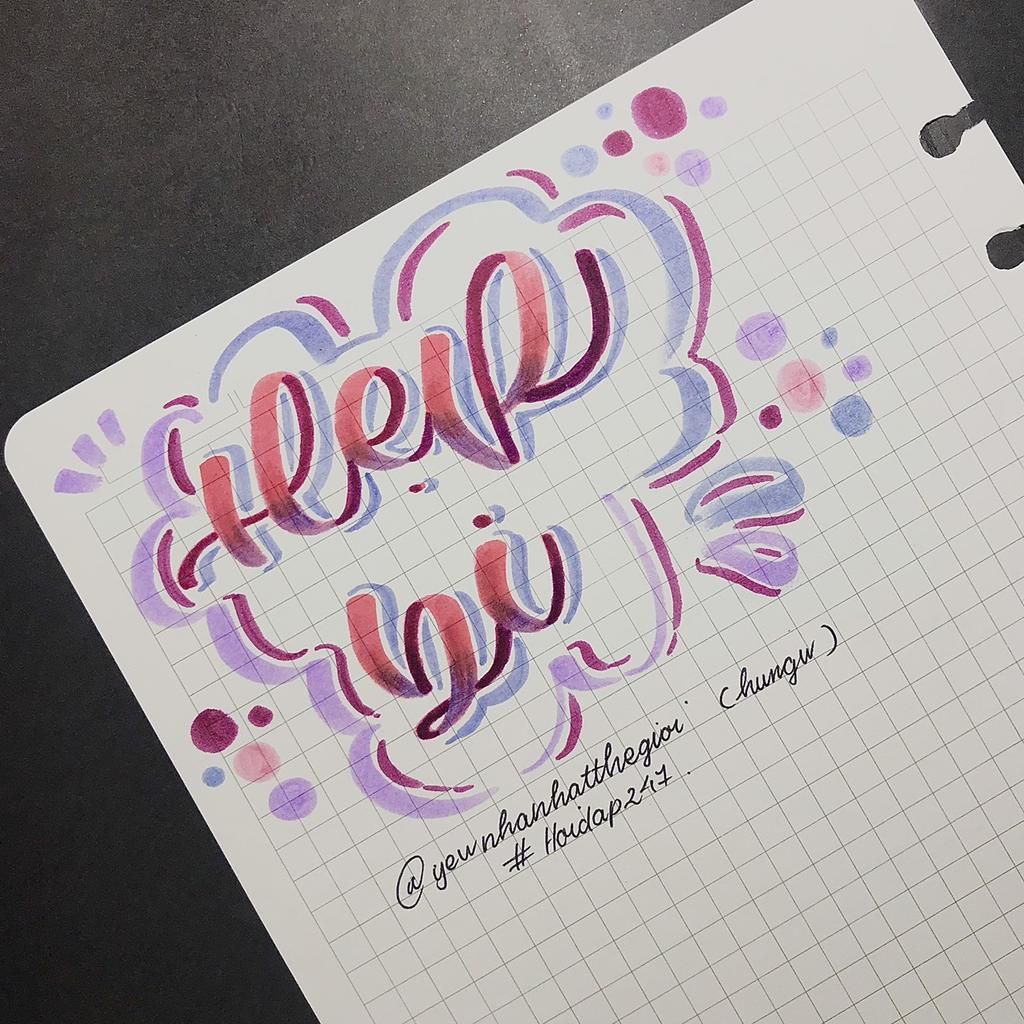 Help
vi
@yewnhanhatthegioi (hungw)
# Hoidap247.